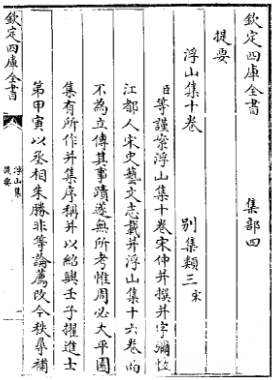 欽定四庫全書　集部四
提要
浮山集十卷　別集類三宋
臣等謹案浮山集十卷宋仲并撰并字彌性
江都人宋史藝文志載并浮山集十六卷而
不為立傳其事蹟遂無所考惟周必大平園
集有所作并集序稱并以紹興壬子擢進士
第甲寅以丞相朱勝非等論薦改令秩尋補
欽定四庫全書
浮山集
提要